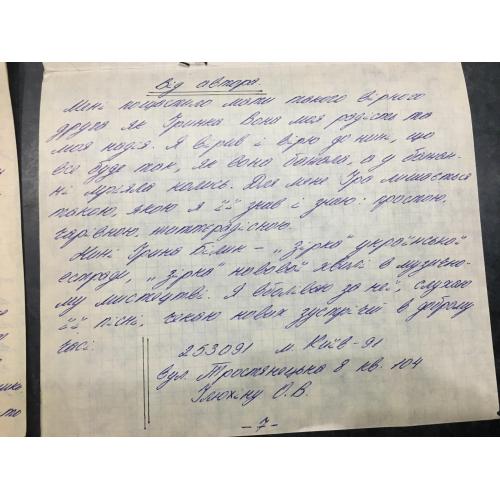 Від автора.
Мені пощастило мати такого вірного
друга як Іринка. Вона моя радість та
моя надія. Я вірив і вірю до нині, що
все буде так, як вона бажала, а у бажан-
ні мріяла колись. Для мене Іра лишається
такою, якою я її знав і знаю: простою,
чарівною, життєрадісною.
Нині Ірина Білик – „зірка" української
естради, „зірка" нової хвилі в музично-
му мистецтві. Я вболіваю за неї, слухаю
її пісні, чекаю нових зустрічей в доброму
часі.
253091 м. Київ-91
вул. Тростянецька 8 кв. 104
Ілюхіну О.В.
-7-